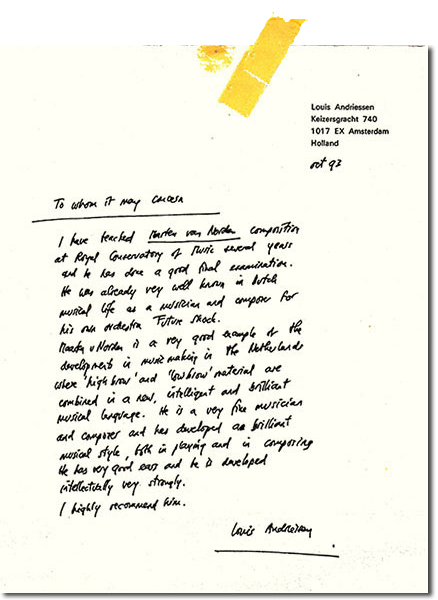 Louis Andriessen
Keizersgracht 740
1017 EX Amsterdam
Holland
oct 93
To whom it may concern
I have teached Maarten van Norden composition
at Royal Conservatory of Music several years
and he has done a good final examination.
He was already very well known in Dutch
musical life as a musician and composer for
his own orchestra Future Shock.
Maarten v Norden is a very good example of the
development in music making in the Netherlands
where 'high brow' and 'low brow' material are
combined in a new, intelligent and brilliant
musical language. He is a very fine musician
and composer and has developed a brilliant
musical style, both in playing and in composing
He has very good ears and he is developed
intellectually very strongly.
I highly recommend him.
Louis Andriessen